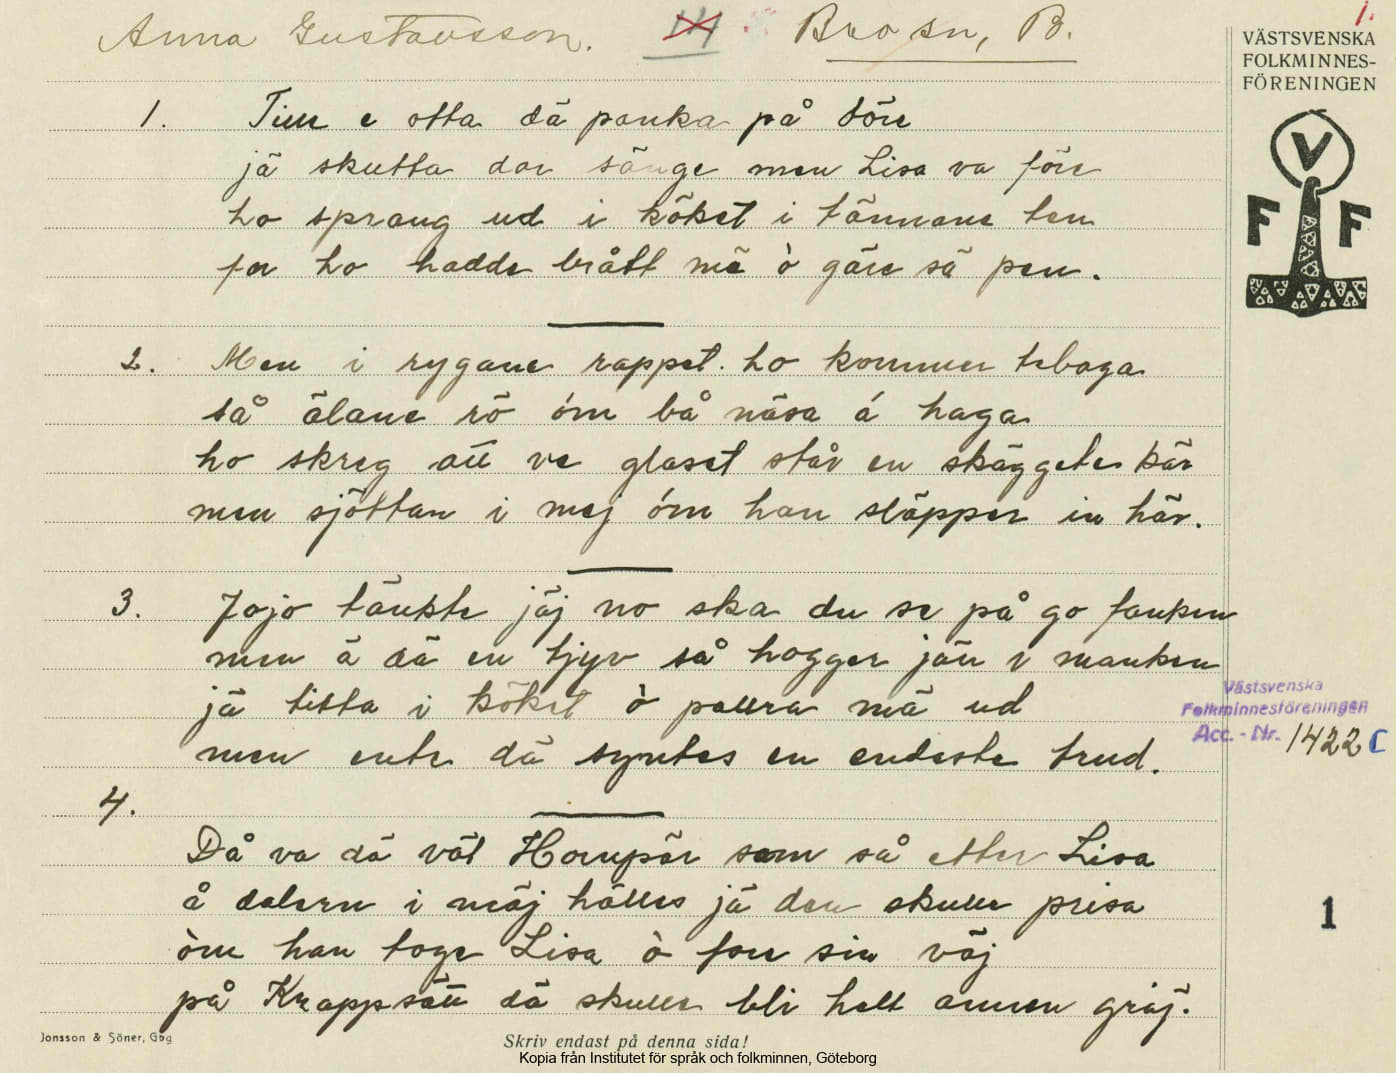 1.
Anna Gustavsson. Brosn, B.
VÄSTSVENSKA
FOLKMINNES-
FÖRENINGEN
V
F F
1. Tim e otta dä panka på döre
jä skutta dor sänge men Lisa va före
ho sprang ud i köket i tännane ten
for ho hadde brått mä ò gäre sä pen.
2. Men i rygane rappet ho kommer tebaga
så älane rö óm bå näsa á haga
ho skreg att ve glaset står en skäggeter kär
men sjöttan i mej óm han släpper in här.
3. Jojo tänkte jäj no ska du se på go fanken
men ä dä en tjyv så hogger jän i manken
jä titta i köket ò pallra mä ud
men ente dä syntes en endeste trud.
Västsvenska
Folkminnesföreningen
Acc. - Nr. 1422 C
4.
Då va dä vät Hornpär som så etter Lisa
å dalern i mäj hälles jä den skulle prisa
òm han toge Lisa ò fore sin väj
på Krappsätt dä skulle bli helt annen gräj.
1
Jonsson & Söner, Gbg
Skriv endast på denna sida!
Kopia från Institutet för språk och folkminnen, Göteborg